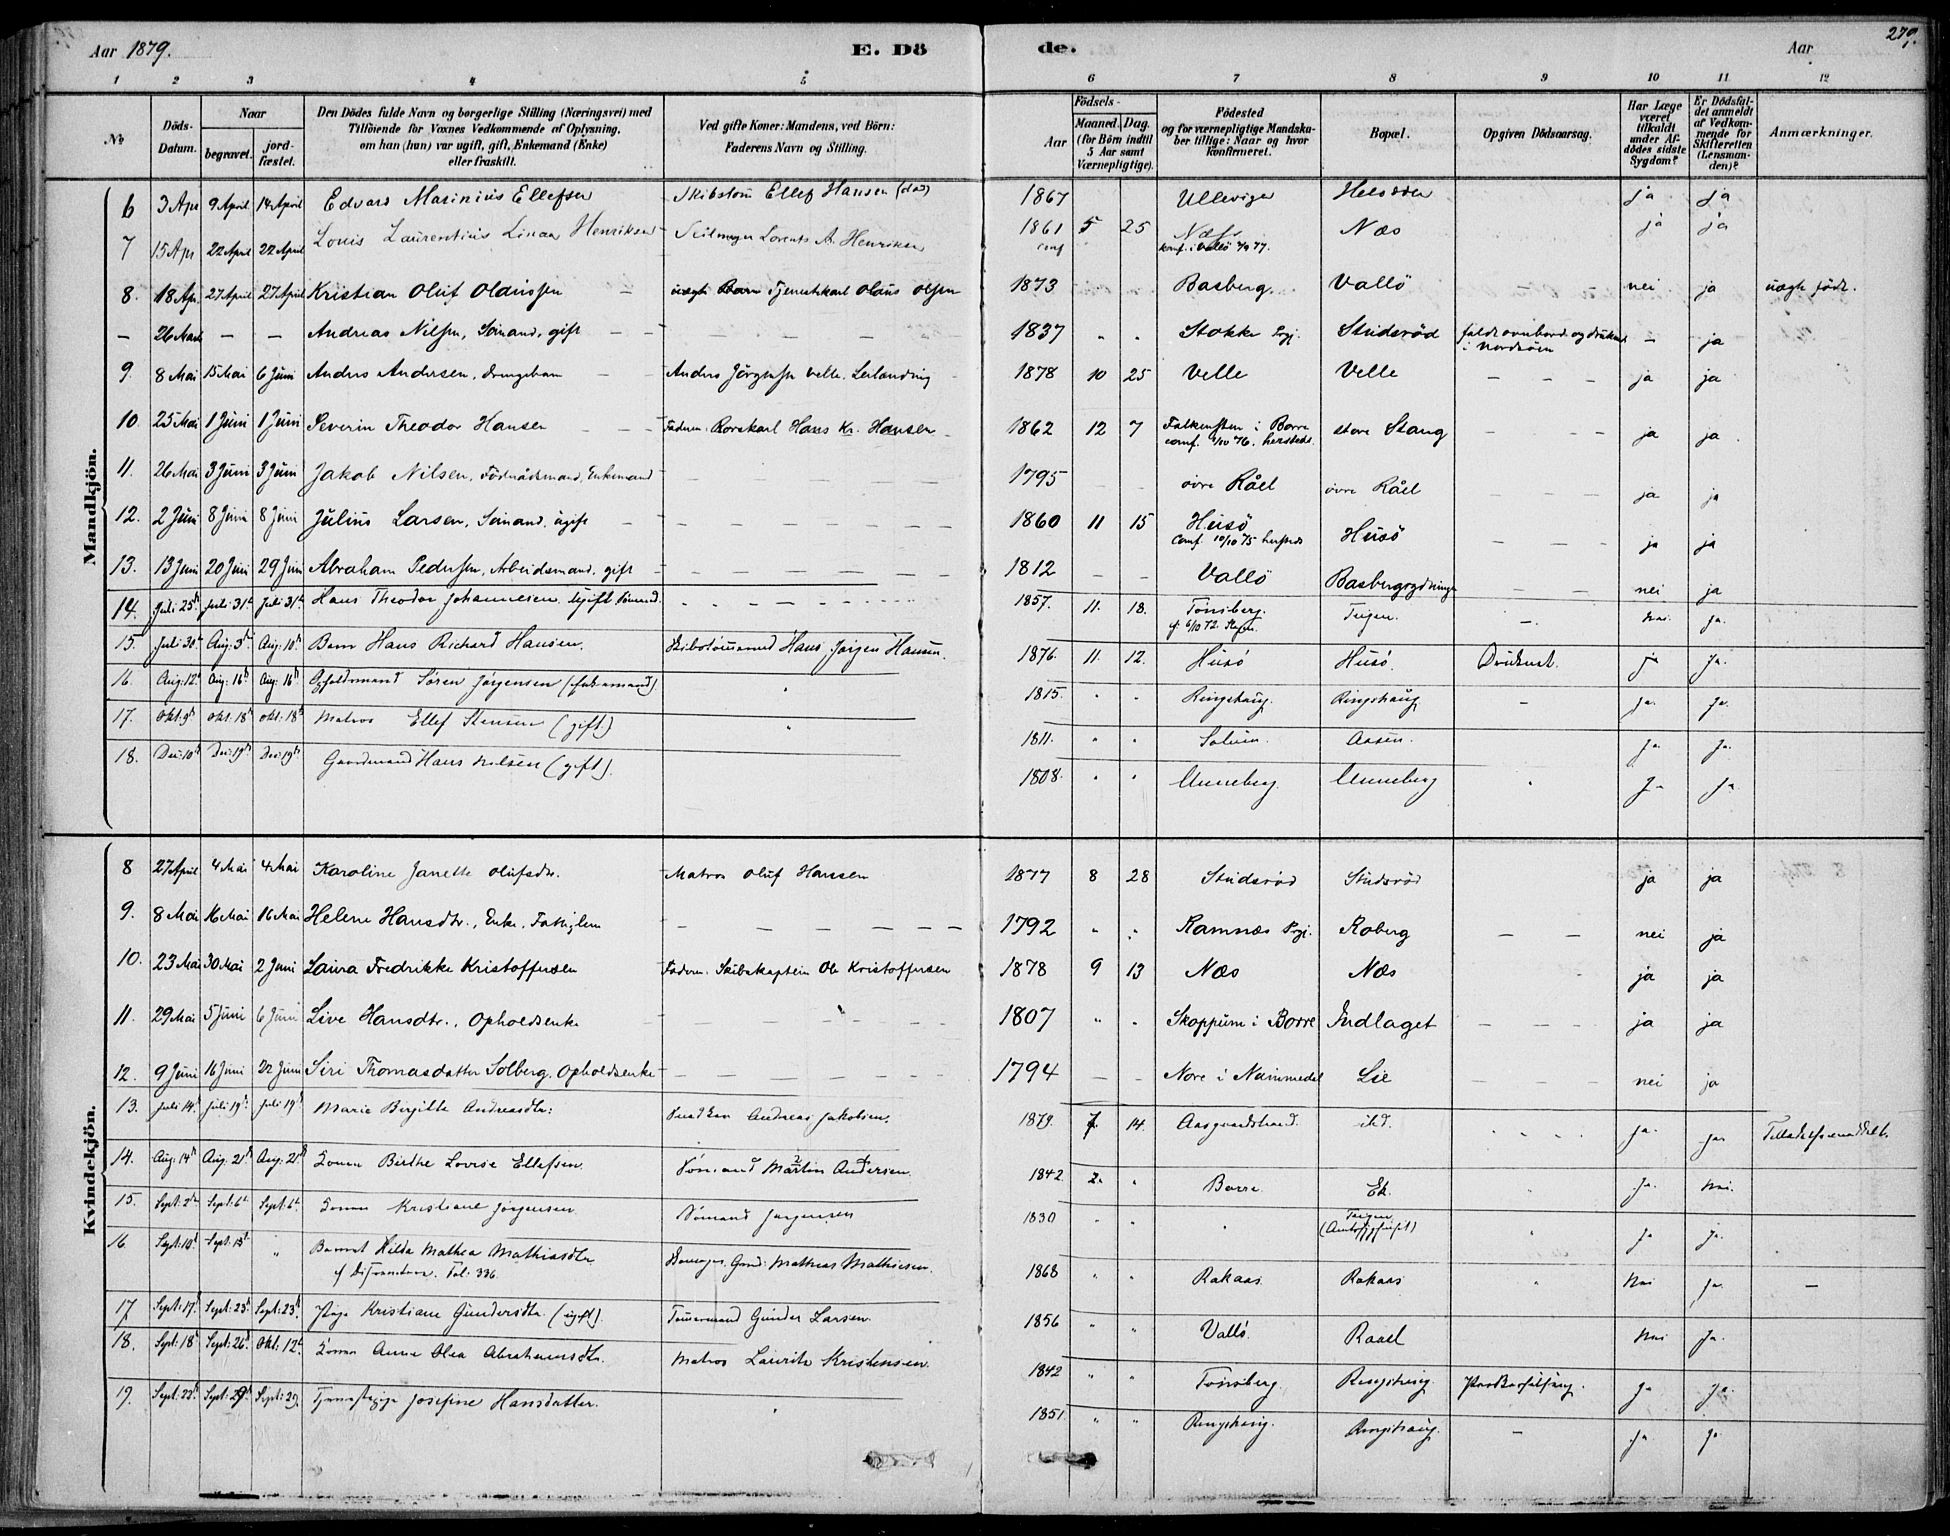 Aar 1879. E. Dö de. Aar 279.
1 2 3 4 5 6 7 8 9 10 11 12
No
Döds-Datum.
Naar
begravet. jordfæstet.
Den Dödes fulde Navn og borgerlige Stilling (Næringsvei) med
Tilföiende for Voxnes Vedkommende af Oplysning,
om han (hun) var ugift, gift, Enkemand (Enke)
eller fraskilt.
Ved gifte Koner: Mandens, ved Börn:
Faderens Navn og Stilling.
Födsels-
Aar Maaned. Dag.
(for Börn indtil
5 Aar samt
Værnepligtige).
Födested
og for værnepligtige Mandska-
ber tillige: Naar og hvor
konfirmeret.
Bopæl.
Opgiven Dödsaarsag.
Har Læge
været
tilkaldt
under Af-
dödes sidste
Sygdom?
Er Dödsfal-
det anmeldt
af Vedkom-
mende for
Skifteretten
(Lensman-
den)?
Anmærkninger.
Mandkjön.
6 3 Apr 9 April 14 April Edvard Marinius Ellefsen Ellef Hansen 1867 ja ja
7 15 Apr 22 April 22 April Louis Laurentius Henriksen Lorents A. Henriksen 1861 5 25 Næs Næs ja ja
conf konf. i Vallö
8. 18 Apr 27 April 27 April Kristian Oluf Olaussen uægte Barn Tjenestekarl Olaus Olsen 1873 Basberg. Vallö nei ja uægte född.
– 26 Marts – – Andreas Nilsen, Sömand, gift – – 1837 " " Stokke Prgj. Studsröd faldt overbord og druknet – ja
i Nordsöen
9. 8 Mai 15 Mai 6 Juni Anders Andersen, Drengebarn – – Anders Velle, Leilænding 1878 10 25 Velle Velle – – – ja ja
10. 25 Mai 1 Juni 1 Juni Severin Theodor Hansen – – – Faderen: Hans Kr. Hansen 1862 12 7 Falkensten i Borre store Stang – – – ja ja
conf. 1/10 76. hersteds.
11. 26 Mai 3 Juni 3 Juni Jakob Nilsen, Föderaadsmand, Enkemand – – – 1795 – – övre Råel övre Råel – – – ja ja
12. 2 Juni 8 Juni 8 Juni Julius Larsen, Sömand, ugift – – – 1860 11 15 Husö Husö – – – ja ja
Conf. 10/10 75 hersteds
13. 13 Juni 20 Juni 29 Juni Abraham Pedersen, Arbeidsmand, gift – – – 1812 – – Vallö Basbergrydningen – – nei ja
14. Juli 25d Juli 31te Juli 31te Hans Theodor Johannesen Ugift Sömand. – – – 1857. 11. 18. Tönsberg. Teigen. – Nei. Ja.
cf. 6/10 72.
15. Juli 30te Aug: 3die Aug: 10de Barn Hans Richard Hansen. Hans Jörgen Hansen. 1876. 11. 12. Husö Husö. Druknet. ja Ja.
16. Aug: 12te Aug: 16de Aug: 16de Sören Jörgensen " 1815. " " Ringshaug. Ringshaug – ja. Ja.
17. Okt: 9de Okt: 18de Okt: 18de Matros Ellef Stensen (gift) " 1811. " " Solum. Aasen. Ja. Ja.
18. Dec: 10de Dec: 19de Dec: 19de Gaardmand Hans Nilsen (gift). 1808. " " Unneberg. Unneberg " Ja Ja
Kvindekjön.
8 27 April 4 Mai 4 Mai Karoline Janette Olufsdtr. – Matros Oluf Hansen 1877 8 28 Studsröd Studsröd ja ja
9. 8 Mai 16 Mai 16 Mai Helene Hansdtr., Enke, Fattiglem – – – 1792 " " Ramnæs Prgj. Roberg – – nei ja
10. 23 Mai 30 Mai 2 Juni Laura Fredrikke Kristoffersen Faderen: Skibskaptein Ole Kristoffersen 1878 9 13 Næs Næs ja ja
11. 29 Mai 5 Juni 6 Juni Live Hansdtr., Opholdsenke – – – 1807 " " Skoppum i Borre Indlaget – – – ja ja
12. 9 Juni 16 Juni 22 Juni Siri Thomasdatter Solberg, Opholdsenke – – – 1794 – – Nore i Numedal Lie nei ja
13. Juli 14de Juli 19de Juli 19de Marie Birgitte Andreasdtr: Andreas Jakobsen. 1879. 7. 14. Aasgaardstrand. ibd. " " " Ja. Ja.
14. Aug: 14de Aug: 21de Aug: 21de Konen Birthe Lovise Ellefsen. Sömand Martin Andersen. 1842. 2. " Borre. Ek. " Ja. Nei.
15. Sept: 2den Sept: 6te Sept: 6te Konen Kristiane Jörgensen. Sömand Jörgensen 1830 " " " Teigen " Ja Ja.
16. Sept: 10de Sept: 13de " Barnet Hilda Mathea Mathiasdtr. Gaard: Mathias Mathiesen. 1868 " " Rakaas. Rakaas " Nei Ja. –
Fol: 336.
17 Sept: 17de Sept: 23de Sept: 23de Pige Kristiane Gundersdtr. (ugift). Tömmermand Gunder Larsen. 1856 " " Vallö. Raael Nei Ja.
18. Sept: 18de Sept: 26de Okt: 12te Konen Anne Olea Abrahamsdtr. Matros Laurits Kristensen. 1842 " " Tönsberg. Ringshaug Ja Ja.
19. Sept: 22de Sept: 29de Sept: 29. Tjenestepige Josefine Hansdatter. " 1851. " " Ringshaug. Ringshaug. – Ja Ja